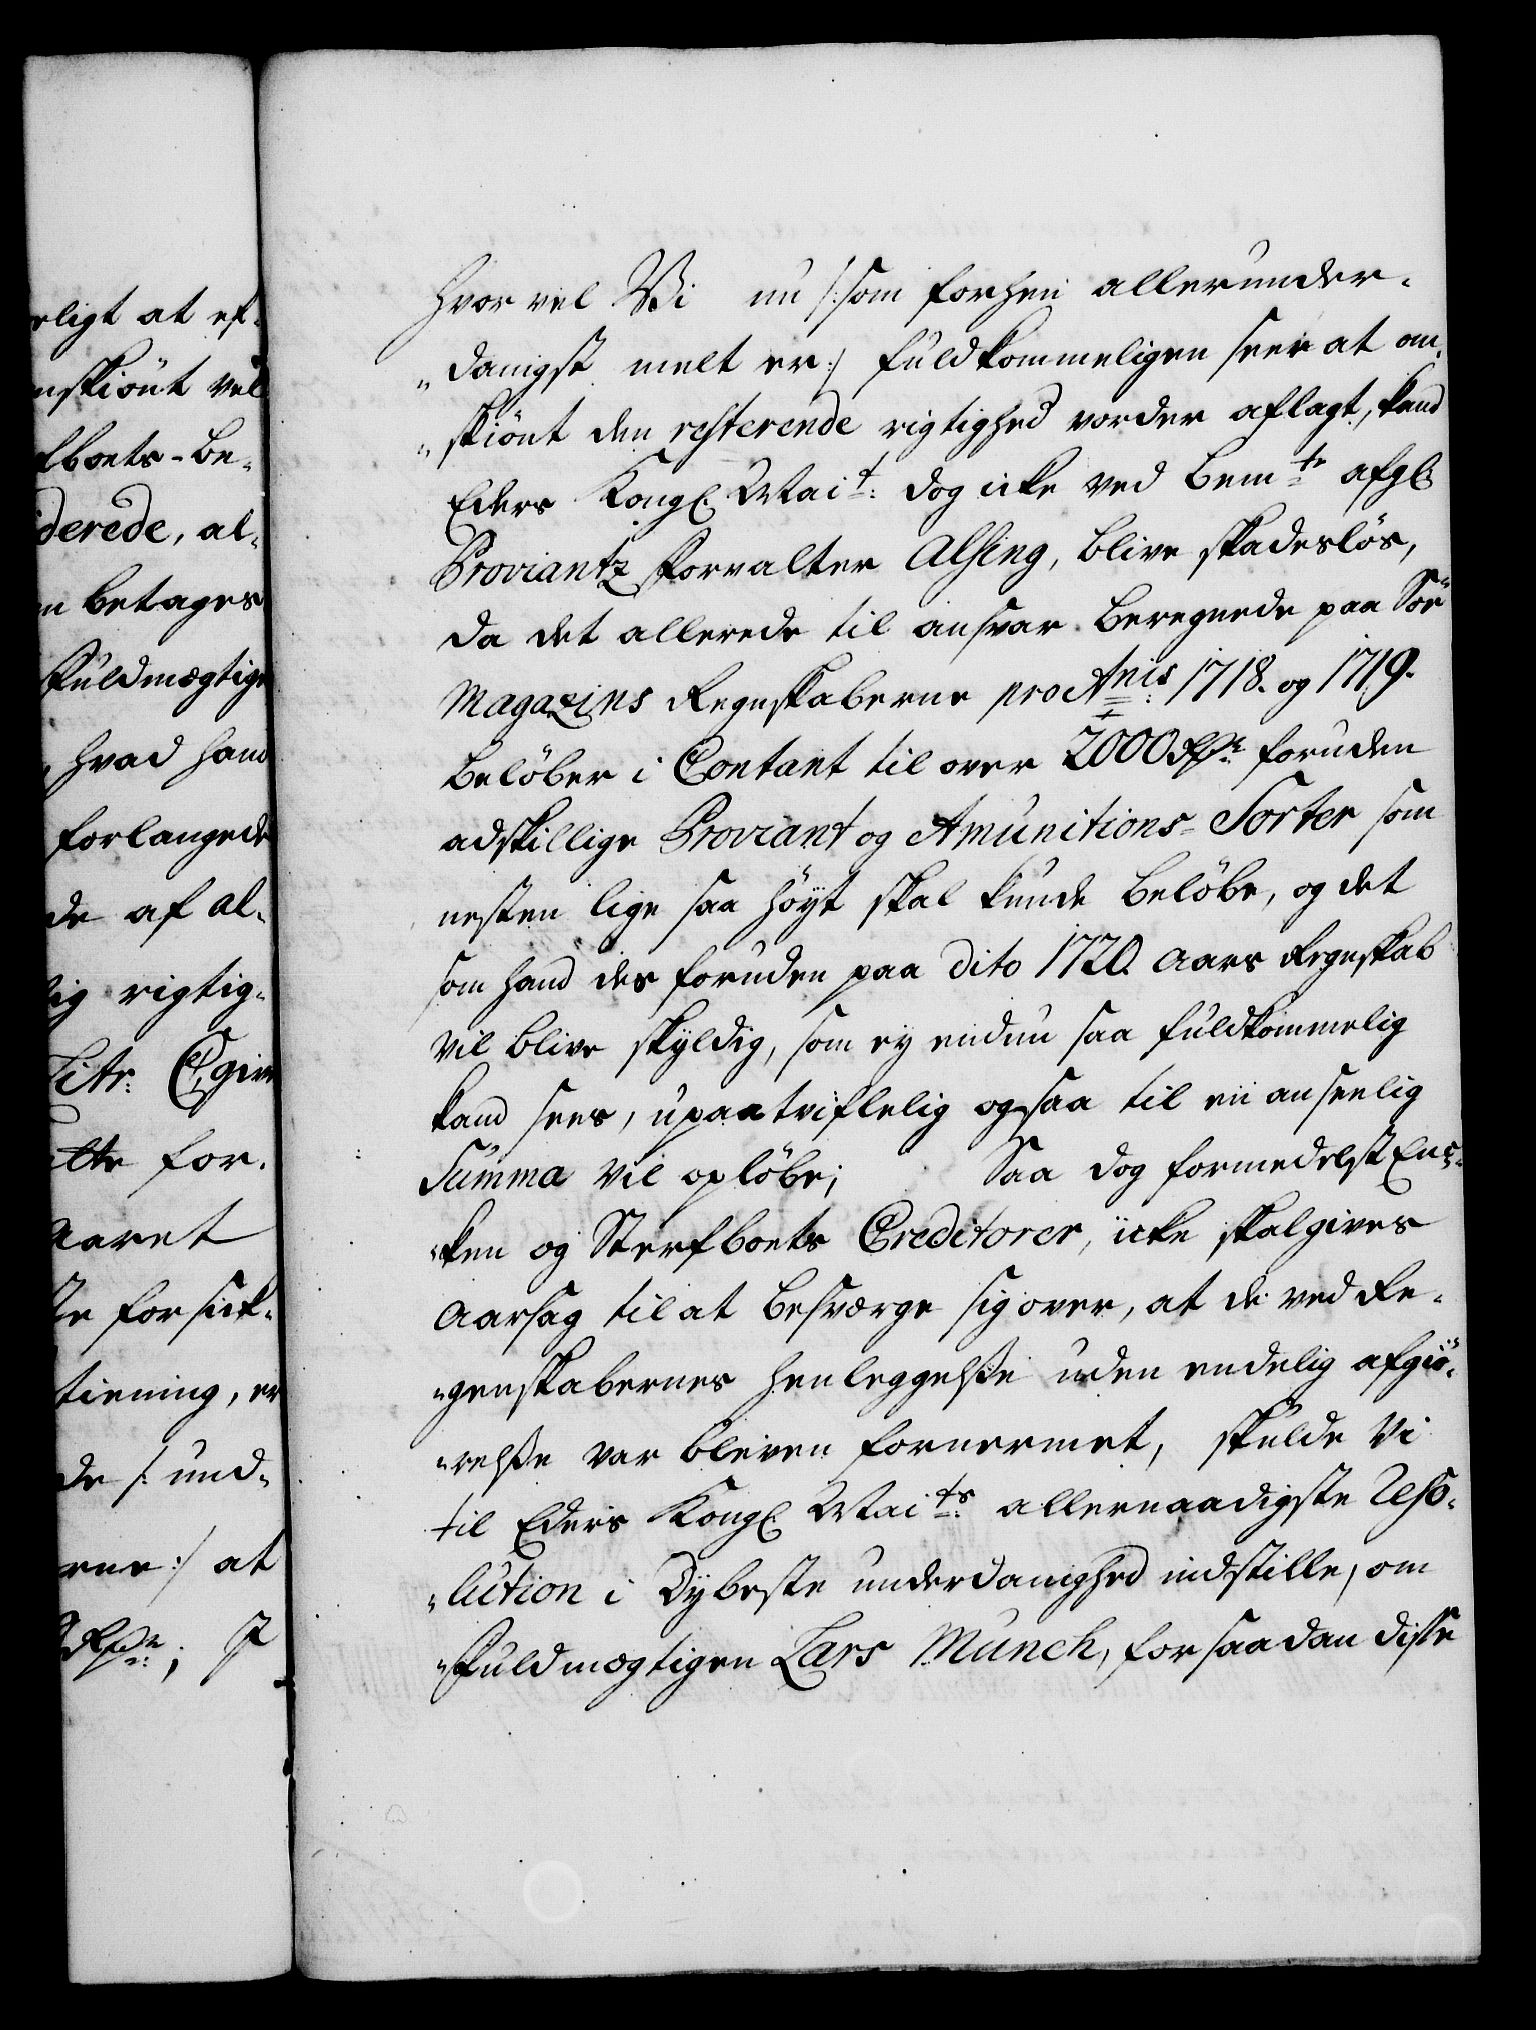 eligt at ef-
nskiönt vel
fboets-be-
iderede, al-
n betages
Fuldmægtige
, hvad hand
forlangede
de af al-
lig rigtig-
Litr: C, give
ette for-
aaret
te forsick-
tiening, er
de /: und-
erne :/ at
Rdr:, 7
Hvor vel Wi nu /: som forhen allerunder-
"danigst melt er :/ fuldkommeligen seer at om-
"skiönt den resterende rigtighed vorder aflagt, kand
Eders Kongl: Mait: dog icke ved bemte afgl:
Proviantz Forvalter Alsing, blive skadeslös,
da det allerede til ansvar beregnede paa Söe
Magazins Regnskaberne pro Anis: 1718. og 1719.
belöber i Contant til over 2000 Rdr: foruden
adskillige Proviant og Amunitions-Sorter som
nesten lige saa höyt skal kunde belöbe, og det
som hand des foruden paa dito 1720. Aars Regnskab
vil blive skyldig, som ey endnu saa fuldkommelig
kand sees, upaatviflelig ogsaa til en anseelig
Summa vil opløbe; Saa dog formedelst En-
"ken og Sterfboets Creditorer, icke skal gives
Aarsag til at besværge sig over, at de ved Re-
"genskabernes henleggelße uden endelig afgiö-
"relße var bleven fornermet, skulde Vi
til Eders Kongl: Maits: allernaadigste Reso-
"lution i dybeste underdanighed indstille, om
"Fuldmægtigen Lars Munch, for saadan disse